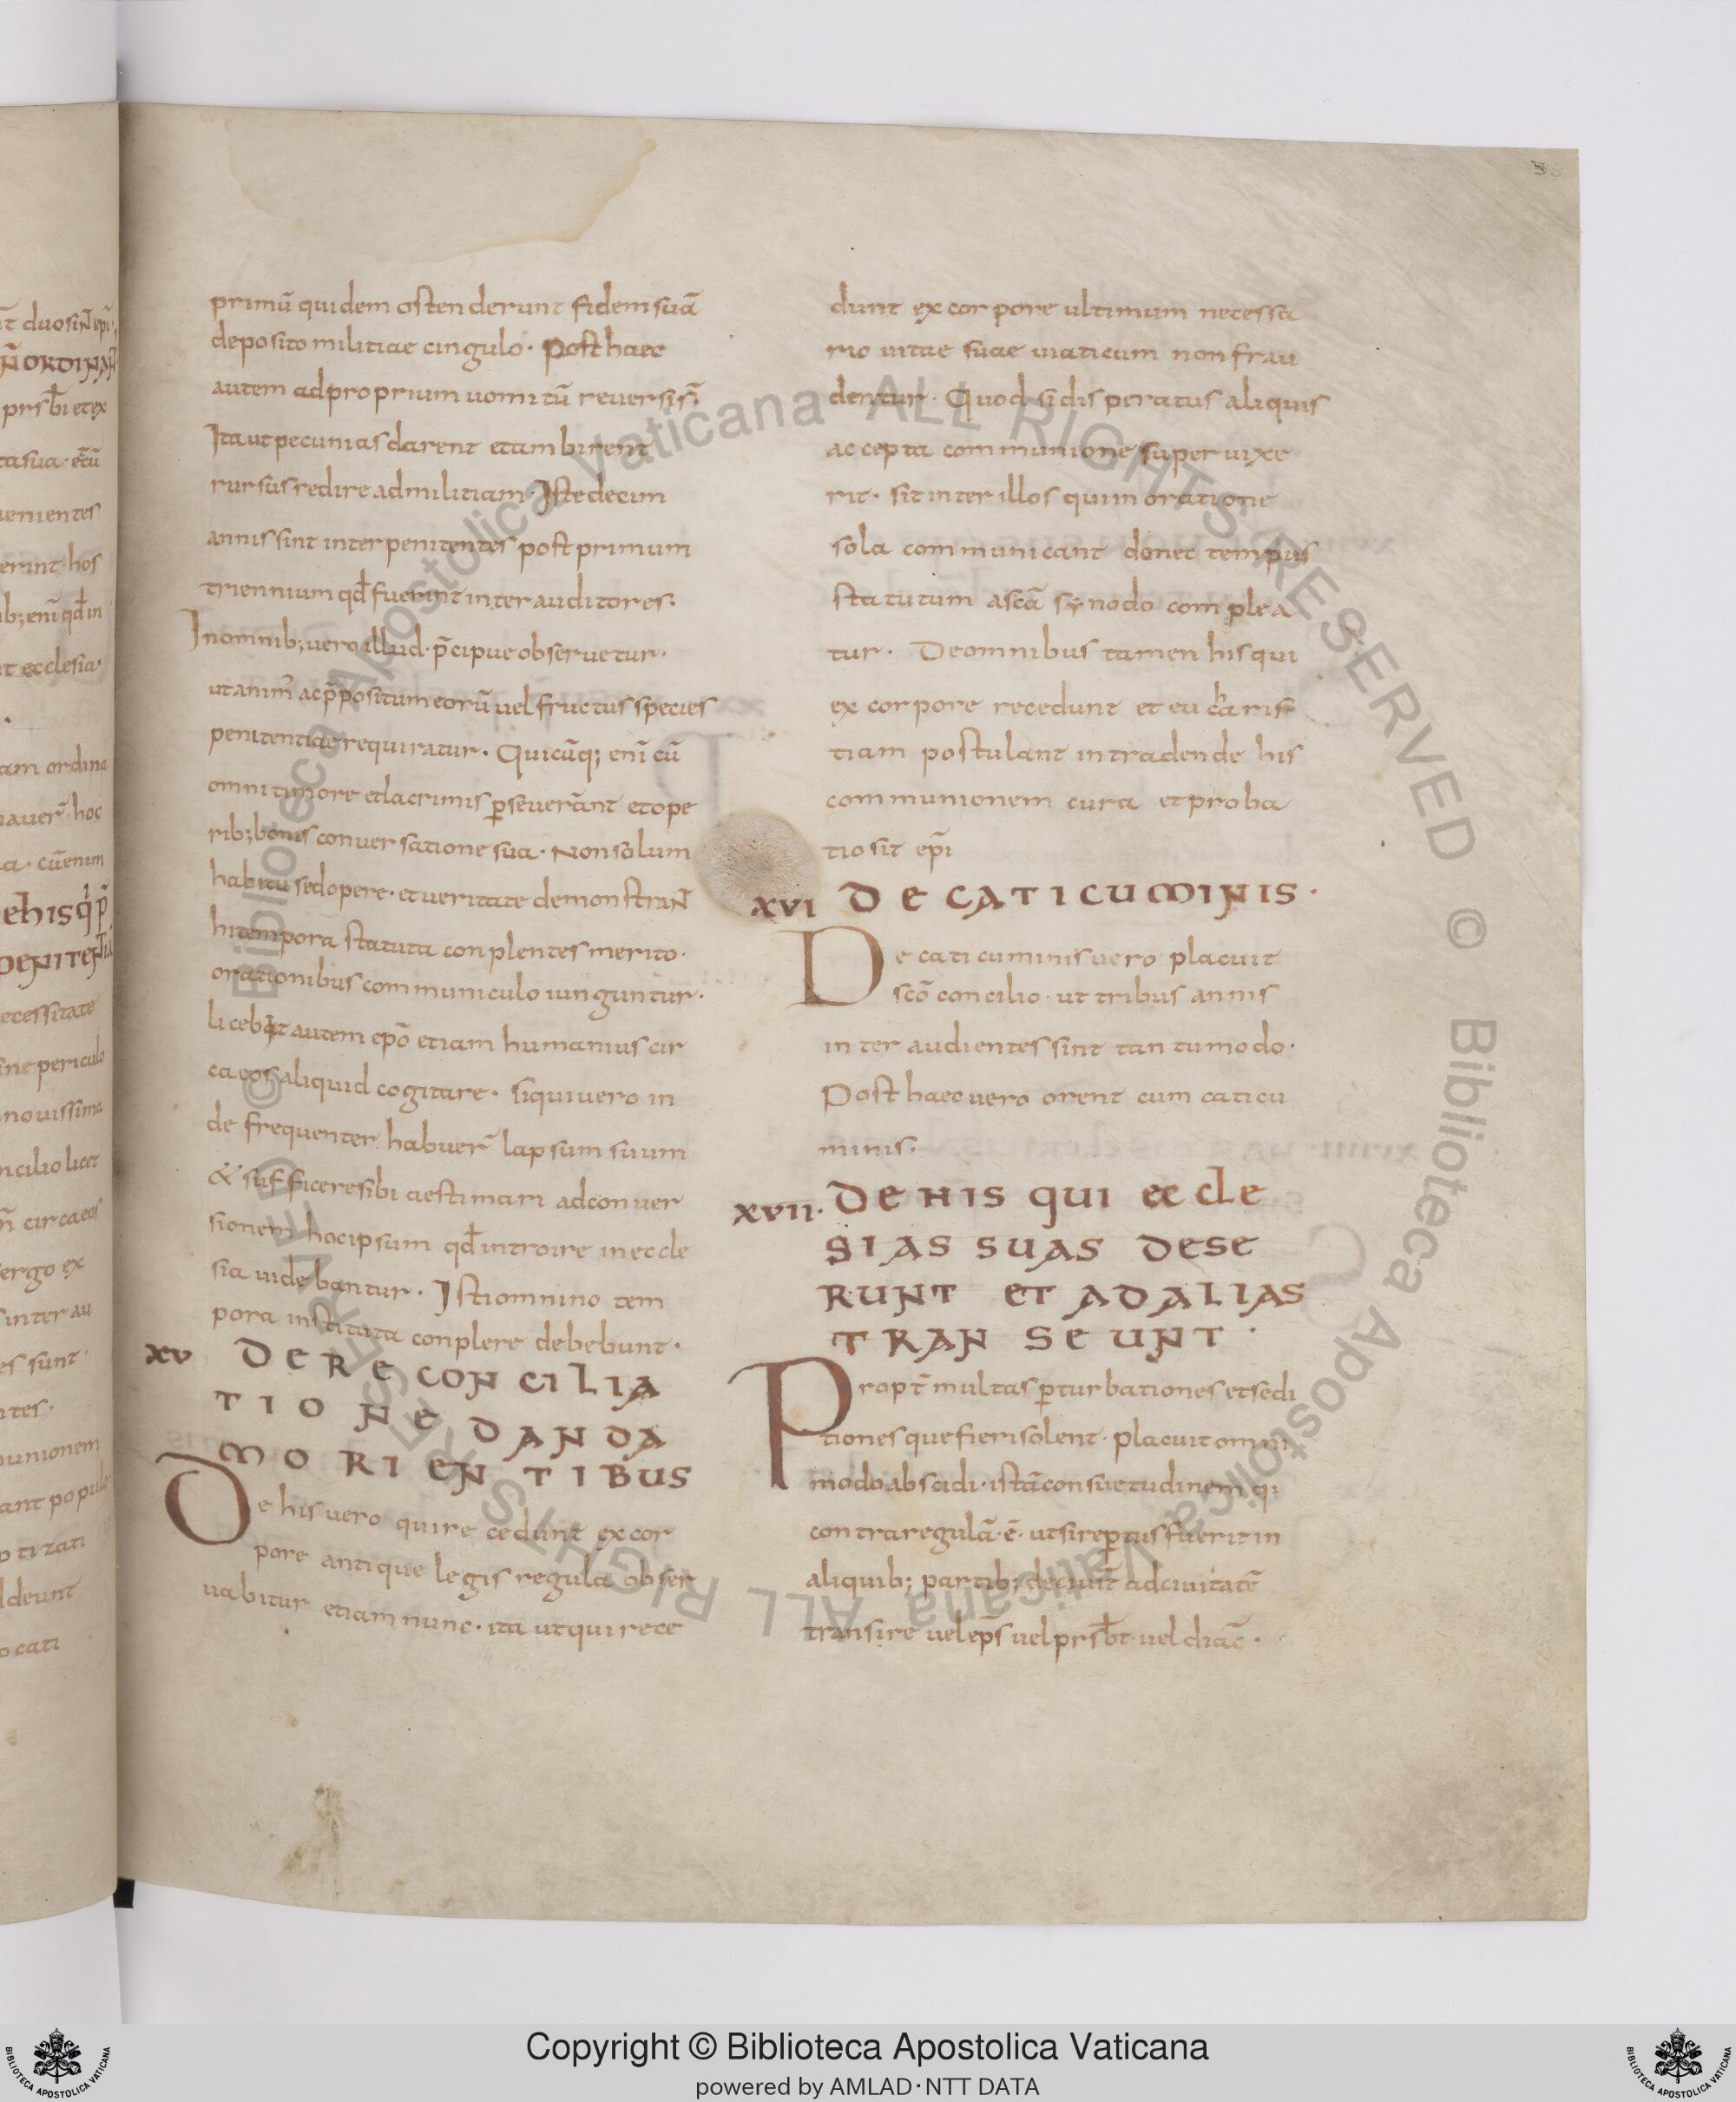 primū quidem ostenderunt fidem suā
deposito militiae cingulo· Post haec
autem ad proprium uomitū reuersi s̄·
Ita ut pecunias darent et ambirent
rursus redire ad militiam· Iste decim
annis sint inter penitentes post primum
triennium qd̄ fuerint inter auditores·
In omnib; uero illud· p̄cipue obseruetur·
ut anim̄ ac p̄positum eorū uel fructus species
penitentiae requiratur· Quicūq; eni cū
omni timore et lacrimis p̱seuerānt et ope
rib; bonis conuersatione sua· Non solum
habitu sed opere· et ueritate demonstraN̄
hi tempora statuta conplentes merito·
orationibus communiculo iunguntur·
licebit autem ep̄o etiam humanius cir
ca eos aliquid cogitare· si qui uero in
de frequenter habuer̄ lapsum suum
& sufficere sibi aestimari ad conuer
sionem hoc ipsum qd̄ introire in eccle
sia uidebantur· Isti omnino tem
pora instituta conplere debebunt·
xv DE RECONCILIA
TIONE DANDA
MORIENTIBUS
De his uero qui recedunt ex cor
pore antique legis regula obser
uabitur etiam nunc· ita ut qui rece
dunt ex corpore ultimum necessa
rio uitae suae uiaticum non frau
dentur· Quod si disperatus aliquis
accepta communione superuixe
rit· sit inter illos qui in oratione
sola communicant donec tempus
statutum a scā synodo complea
tur· De omnibus tamen his qui
ex corpore recedunt et eucharis
tiam postulant in tradende his
communionem cura et proba
tio sit ep̄i
xvi DE CATICUMINIS·
De caticuminis uero placuit
scō concilio· ut tribus annis
inter audientes sint tantumodo·
Post haec uero orent cum caticu
minis·
xvii· DE HIS QUI ECCLE
SIAS SUAS DESE
RUNT ET AD ALIAS
TRANSEUNT·
Propt̄ multas p̱turbationes et sedi
tiones que fieri solent· placuit omni
modo abscidi· istā consuetudinem q;
contra regulā·ē· ut si rep̱tus fuerit in
aliquib; partib; de ciuit̄ ad ciuitatē
transire uel ep̄s uel prsb̄t· uel diac̄·
Copyright © Biblioteca Apostolica Vaticana
powered by AMLAD·NTT DATA